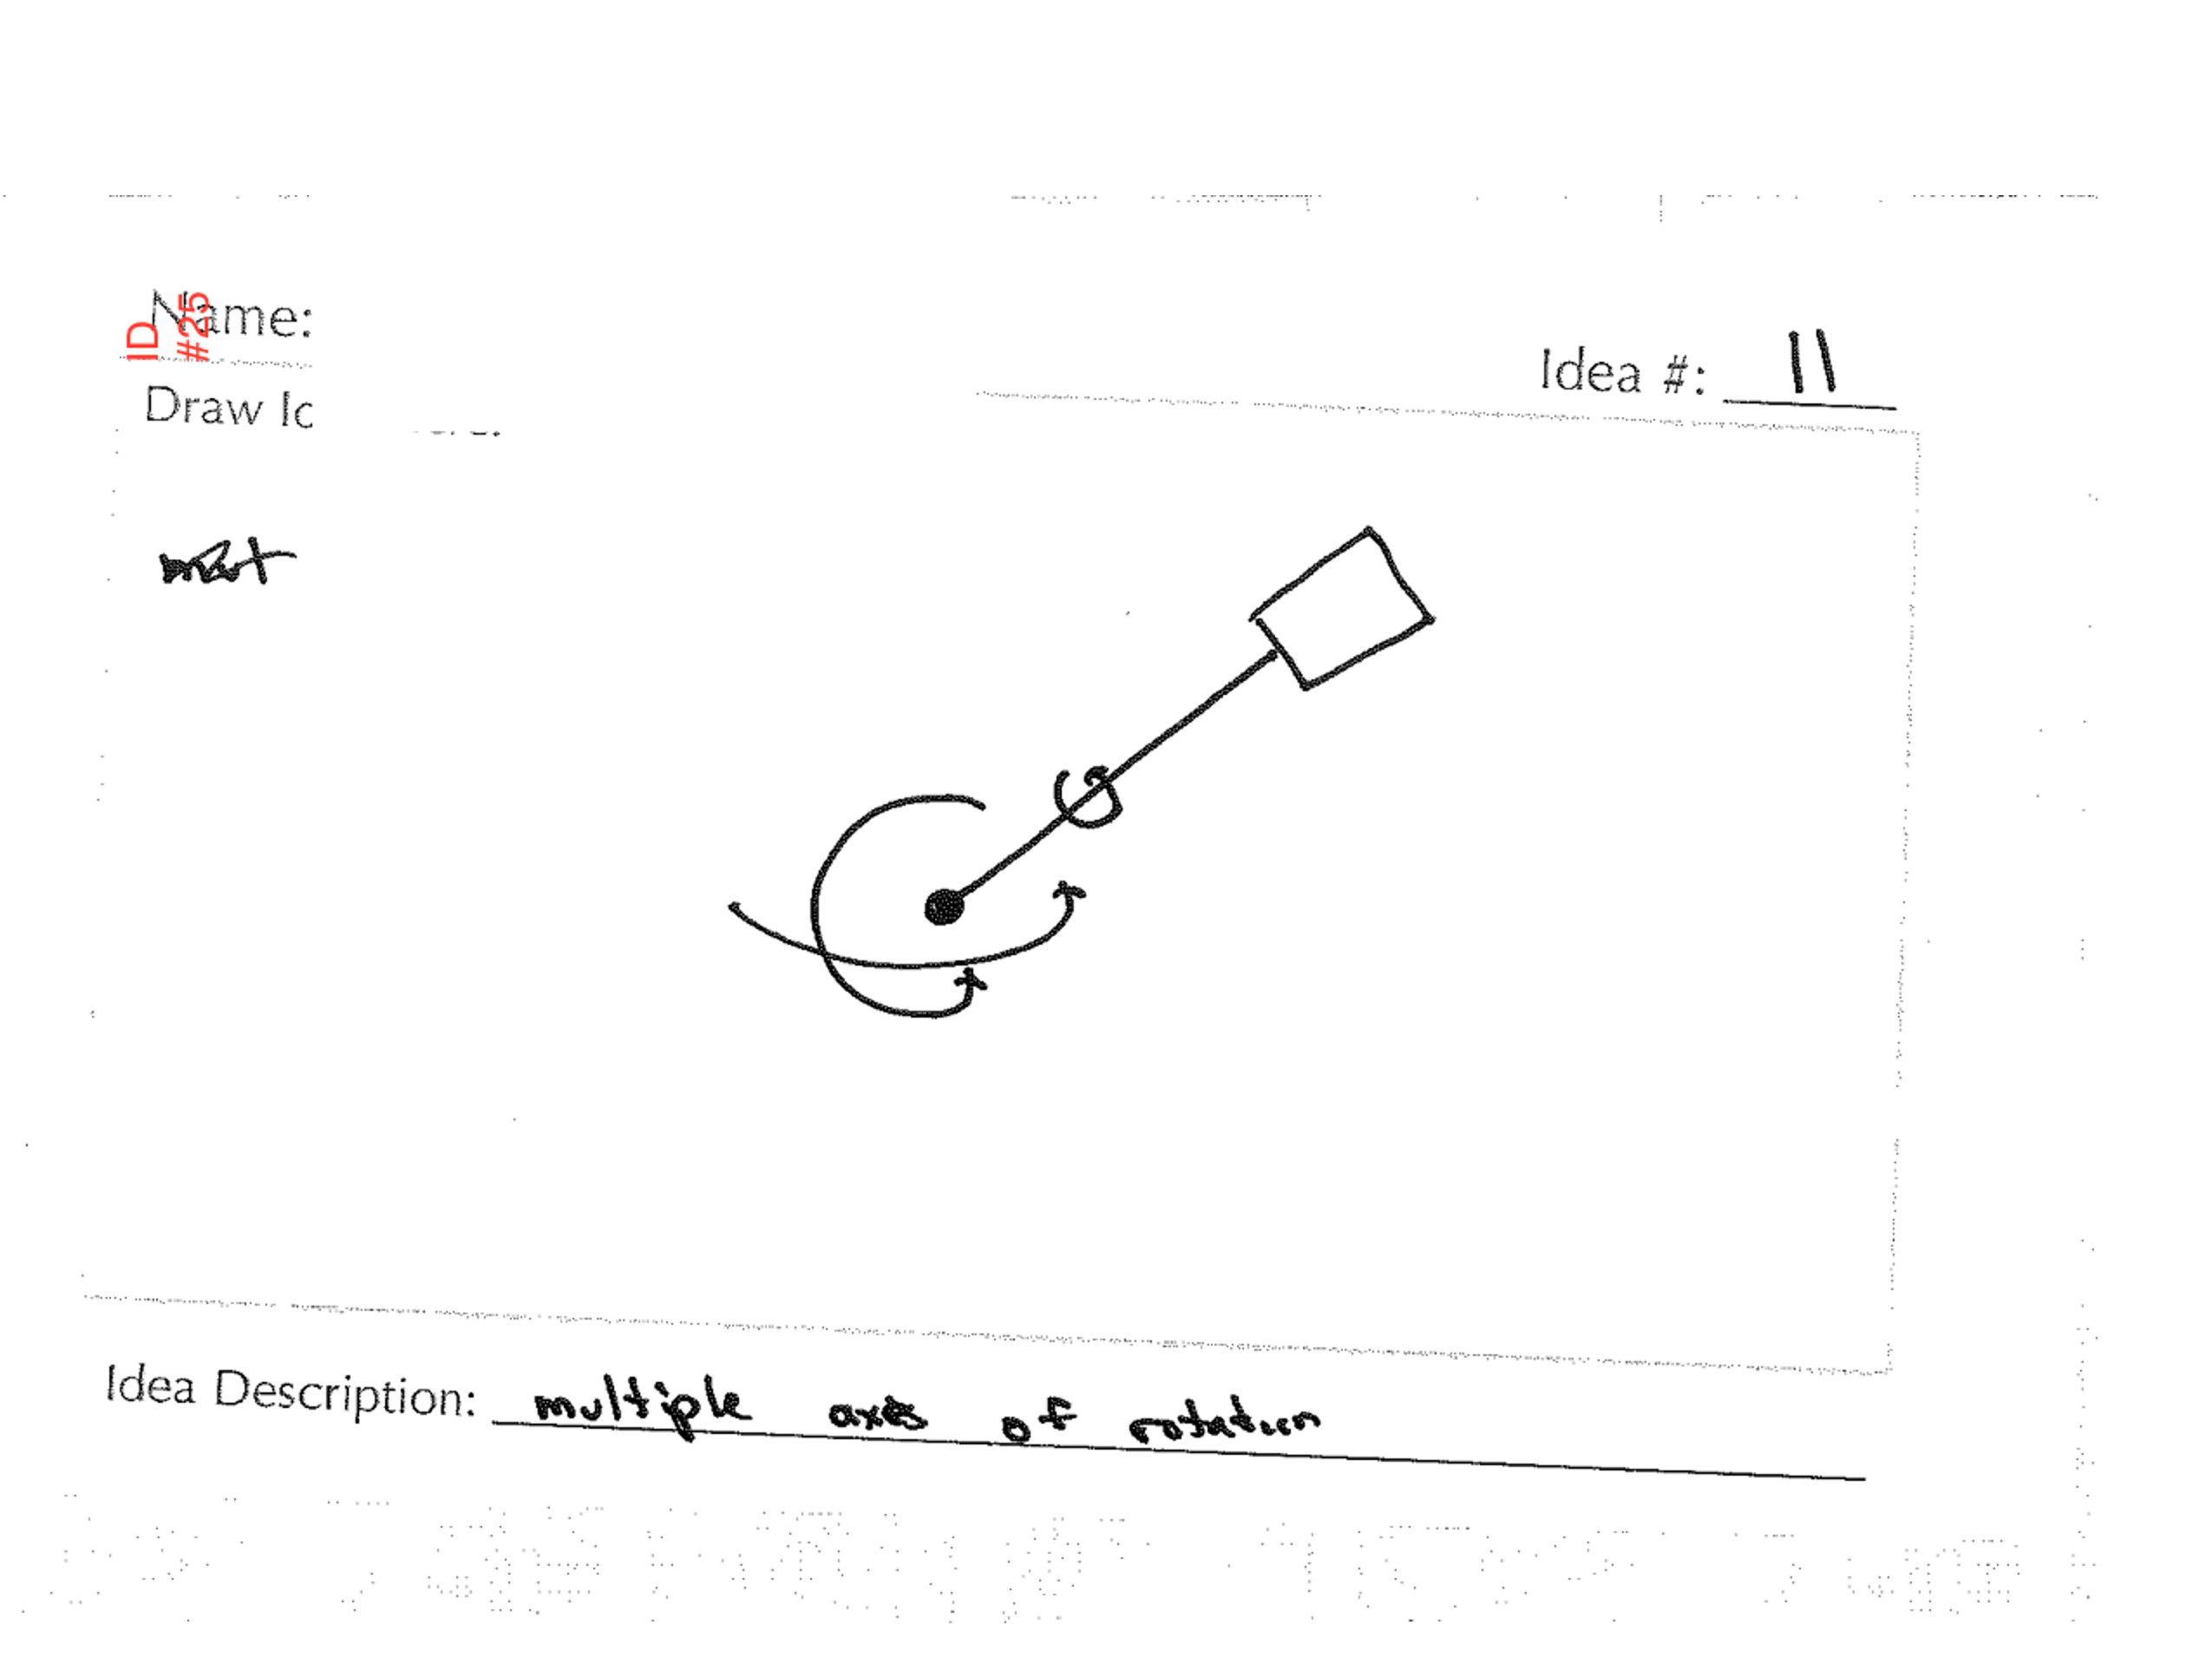 Name:
ID
#25
Idea #: 11
Draw Ic
Idea Description: multiple axes of rotation